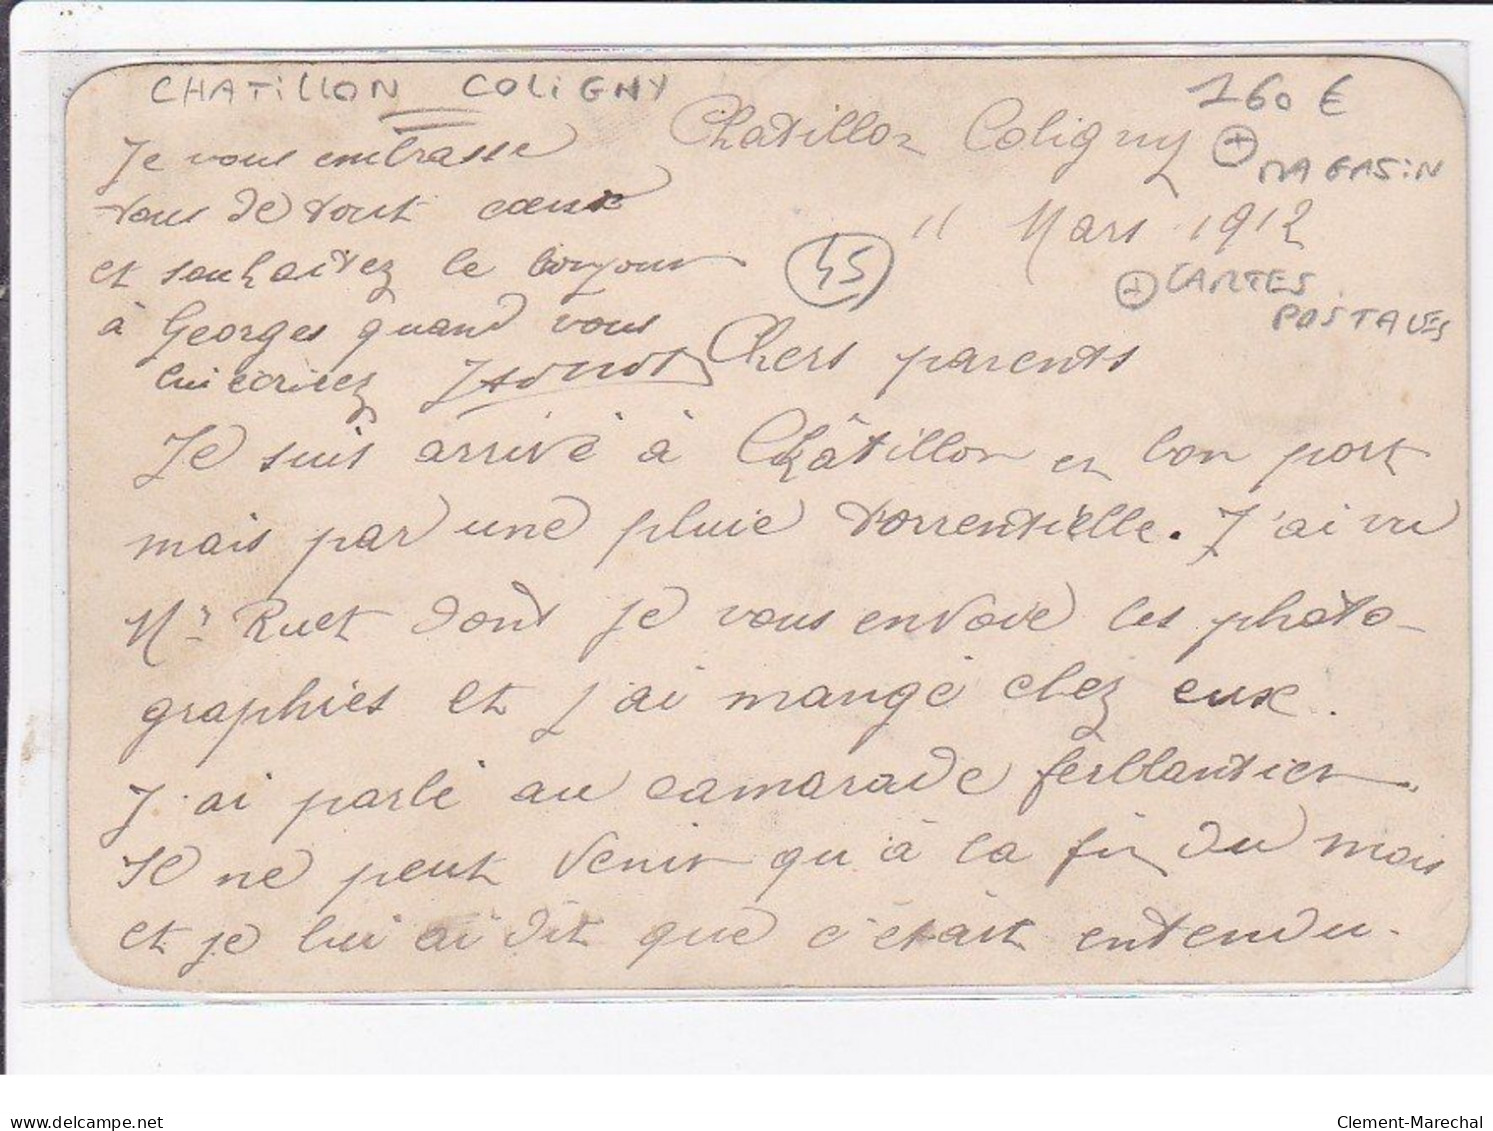 CHATILLON COLIGNY
160 €
+ MAGASIN
+ CARTES
POSTALES
45
Chatillon Coligny
11 Mars 1912
Chers parents
Je suis arrivé à Châtillon en bon port
mais par une pluie torrentielle. J'ai vu
Mr Ruet dont je vous envoie les photo-
graphies et j'ai mangé chez eux.
J'ai parlé au camarade ferblantier
Il ne peut venir qu'à la fin du mois
et je lui ai dit que c'était entendu.
Je vous embrasse
tous de tout cœur
et souhaitez le bonjour
à Georges quand vous
lui écrirez
delcampe.net
Clement-Marechal